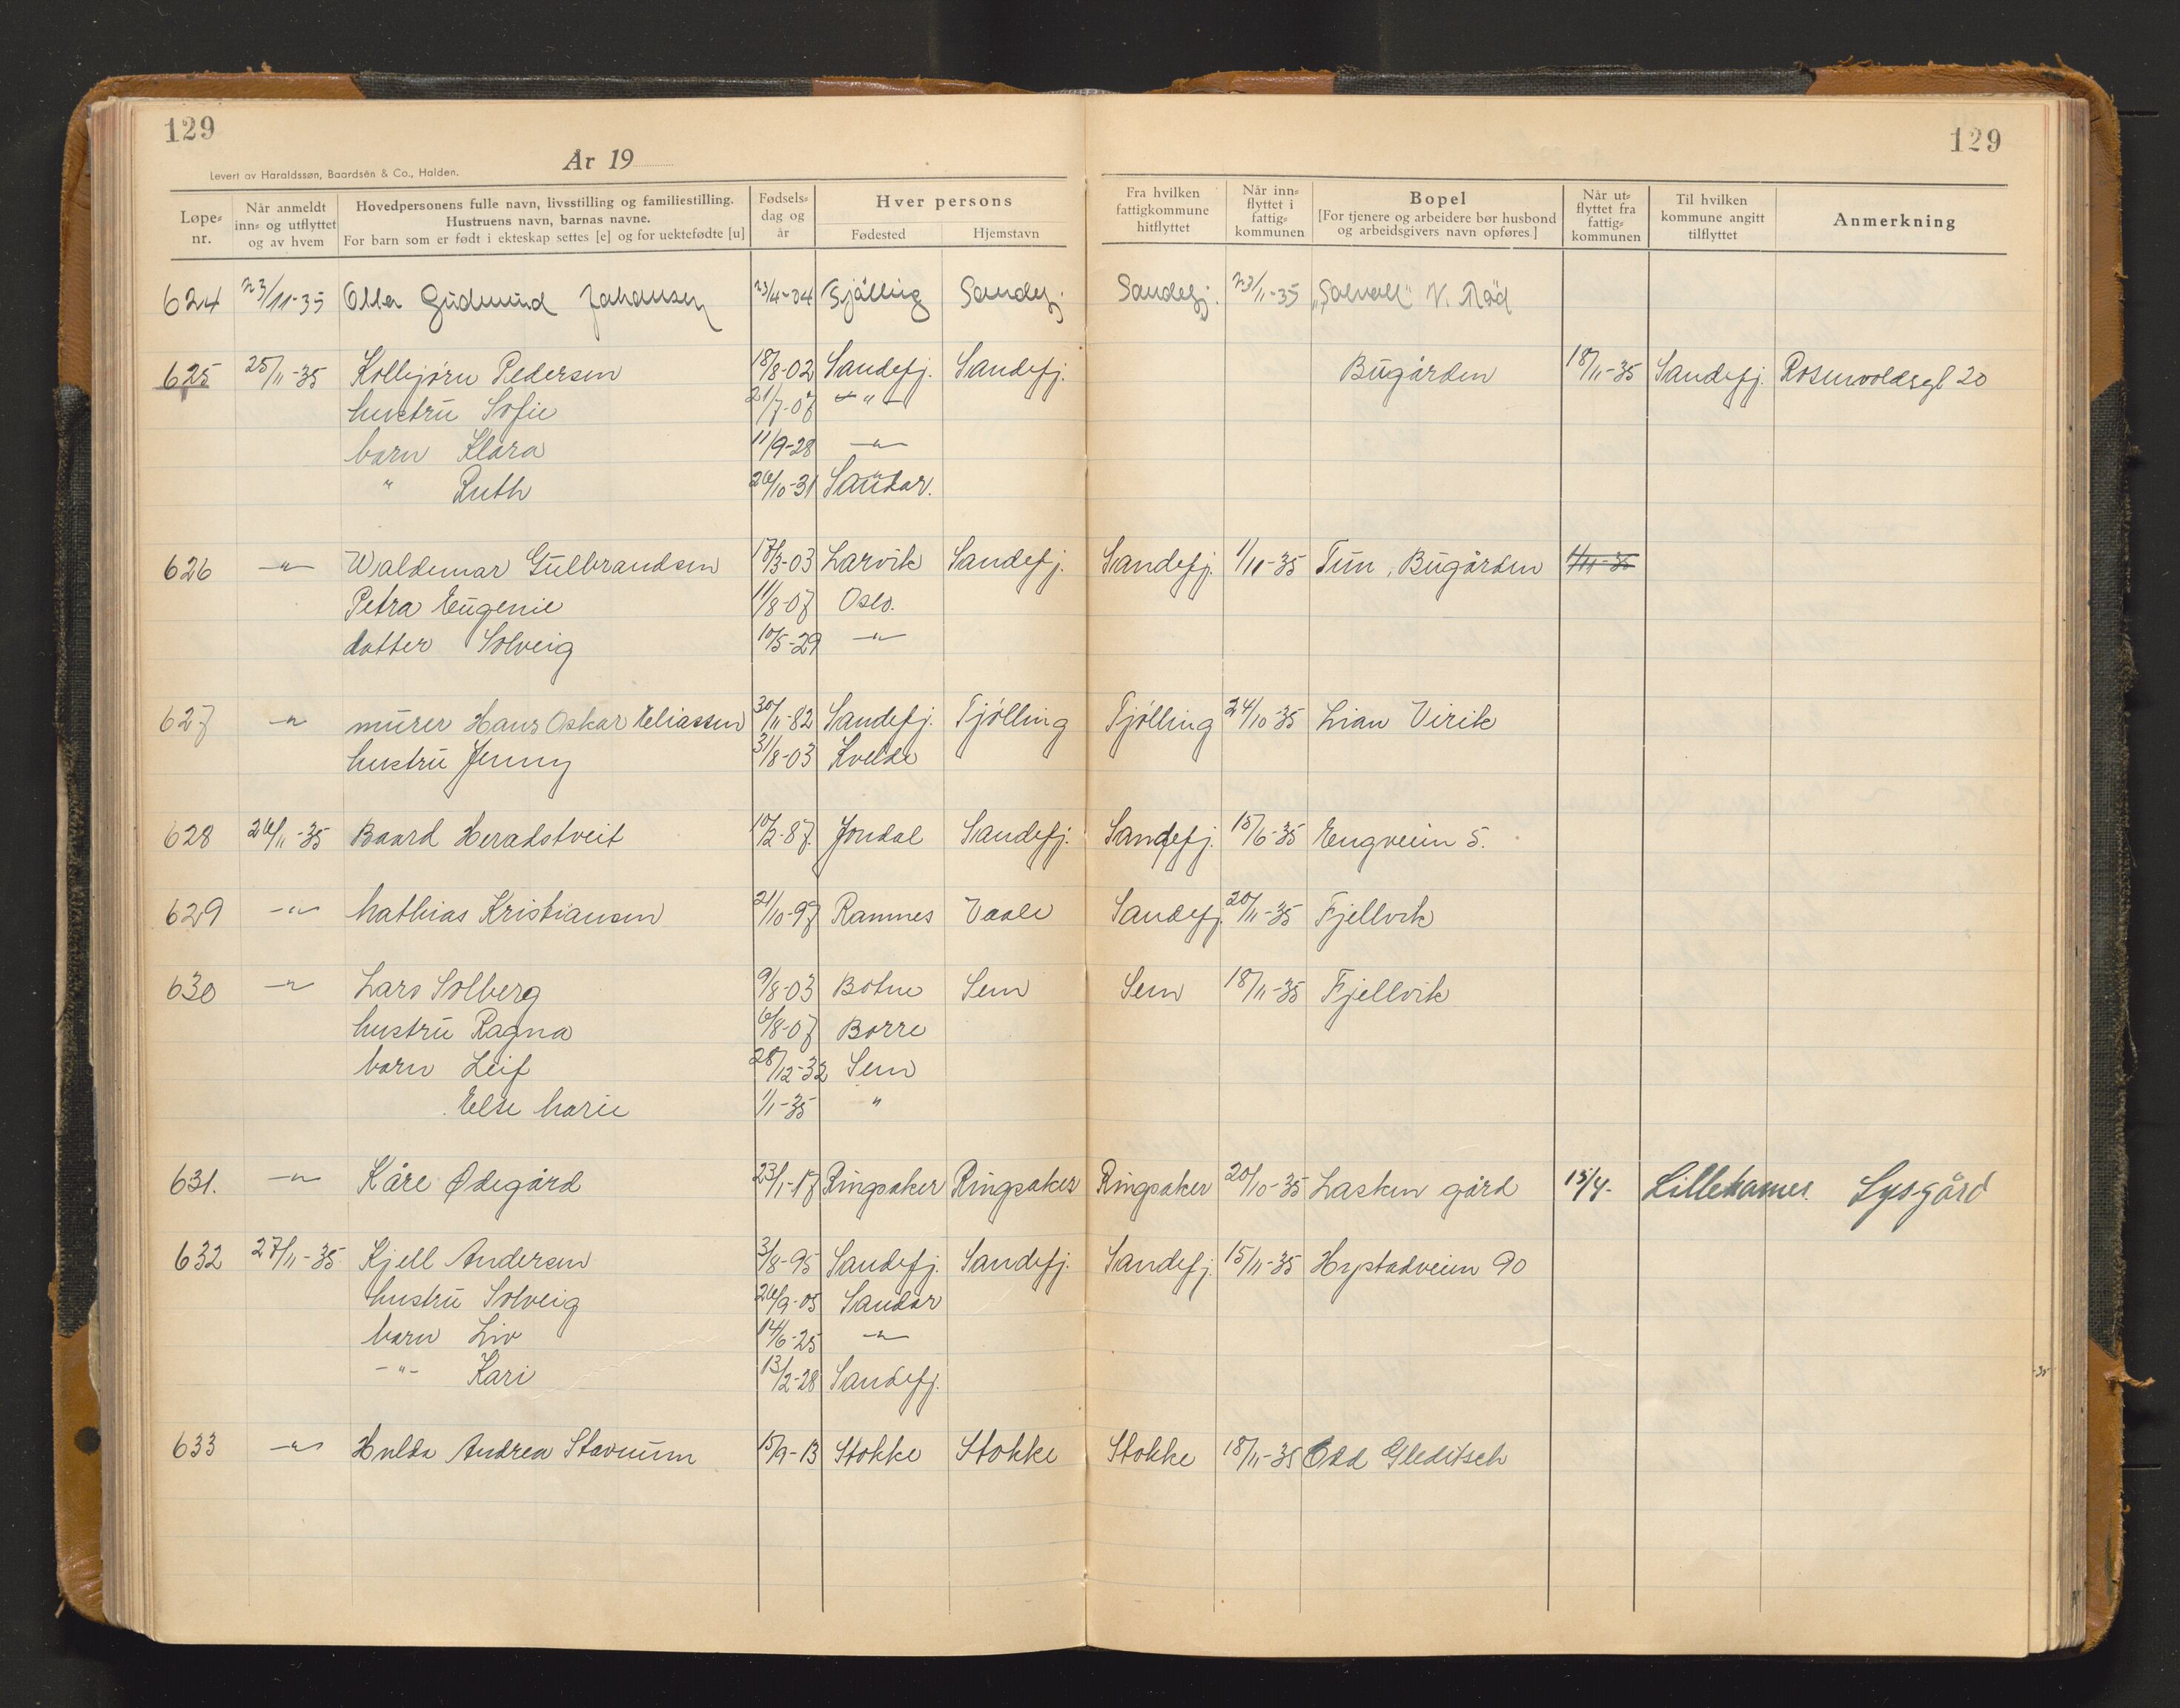 129
129
År 19
Levert av Haraldssøn, Baardsen & Co., Halden.
Løpe-nr. | Når anmeldt inn- og utflyttet og av hvem | Hovedpersonens fulle navn, livsstilling og familiestilling. Hustruens navn, barnas navne. For barn som er født i ekteskap settes [e] og for uektefødte [u] | Fødsels-dag og år | Hver persons Fødested | Hjemstavn | Fra hvilken fattigkommune hitflyttet | Når inn-flyttet i fattig-kommunen | Bopel [For tjenere og arbeidere bør husbond og arbeidsgivers navn opføres] | Når ut-flyttet fra fattig-kommunen | Til hvilken kommune angitt tilflyttet | Anmerkning
624 23/11-35 Olla Gudmund Johansen 23/4-04 Tjölling Sandefj. Sandefj. 23/11-35 "Solvoll" V. Råd
625 25/11-35 Kolbjørn Pedersen 18/8-02 Sandefj. Sandefj. Bugården 18/11-35 Sandefj. Rosenvoldsgt 20
hustru Sofie 21/7-07 - " -
barn Klara 11/9-28 - " -
" Ruth 26/10-31 Sandar.
626 - " - Waldemar Gulbrandsen 17/3-03 Larvik Sandefj. Sandefj. 1/11-35 Tun, Bugården 1/11-35
Petra Eugenie 11/8-07 Oslo.
datter Solveig 10/5-29 - " -
627 - " - murer Hans Oskar Eliassen 30/11-82 Sandefj. Tjølling Tjølling 24/10-35 Lian Virik
hustru Jenny 31/8-03 Kvelde
628 26/11-35 Baard Heradstveit 10/2-87. Jondal Sandefj. Sandefj. 15/6-35 Engveien 5.
629 - " - Mathias Kristiansen 21/10-97 Ramnes Vaale Sandefj. 20/11-35 Fjellvik
630 - " - Lars Solberg 9/8-03 Botne Sem Sem 18/11-35 Fjellvik
hustru Ragna 6/8-07 Borre
barn Leif 28/12-32 Sem
Else Marie 1/1-35 "
631. - " - Kåre Ødegård 23/1-17 Ringsaker Ringsaker Ringsaker 20/10-35 Lasken gård 15/4- Lillehamer. Lysgård
632 27/11-35 Kjell Andersen 3/8-95 Sandefj. Sandefj. Sandefj. 15/11-35 Hystadveien 90
hustru Solveig 26/9-05 Sandar
barn Liv 14/6-25 - " -
- " - Kari 13/2-28 Sandefj.
633 - " - Hulda Andrea Stavnum 15/9-13 Stokke Stokke Stokke 18/11-35 Odd Gleditsch